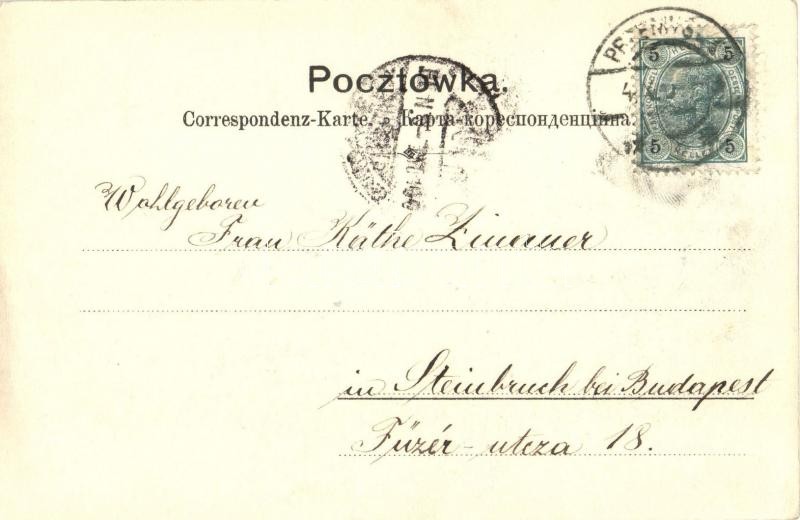 Pocztówka.
Correspondenz-Karte. Карта-кореспонденційна.
PRZEMYŚL
5 5
5 5
Wohlgeboren
Frau Käthe
in Steinbruch bei Budapest
Füzér-utcza 18.